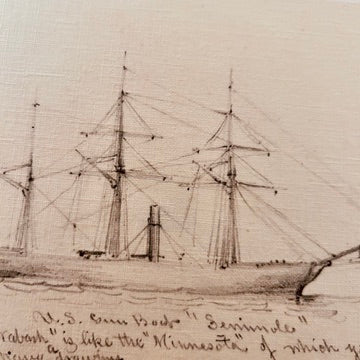 U.S. Gun Boat "Seminole"
abash" is like the "Minnesota" of which y
a
drawing